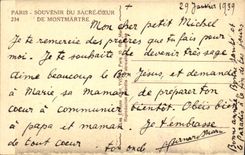 PARIS - SOUVENIR DU SACRÉ-CŒUR
DE MONTMARTRE
234
+ 29 Janvier 1939
Mon cher petit Michel
Je te remercie des prières que tu fais pour
moi. Je te souhaite de devenir très sage
aime beaucoup le Bon Jesus, et demande
à Marie sa Maman de préparer ton
cœur à communier bientôt. Obéis bien
à papa et maman. Je t'embrasse
de tout cœur
ton oncle